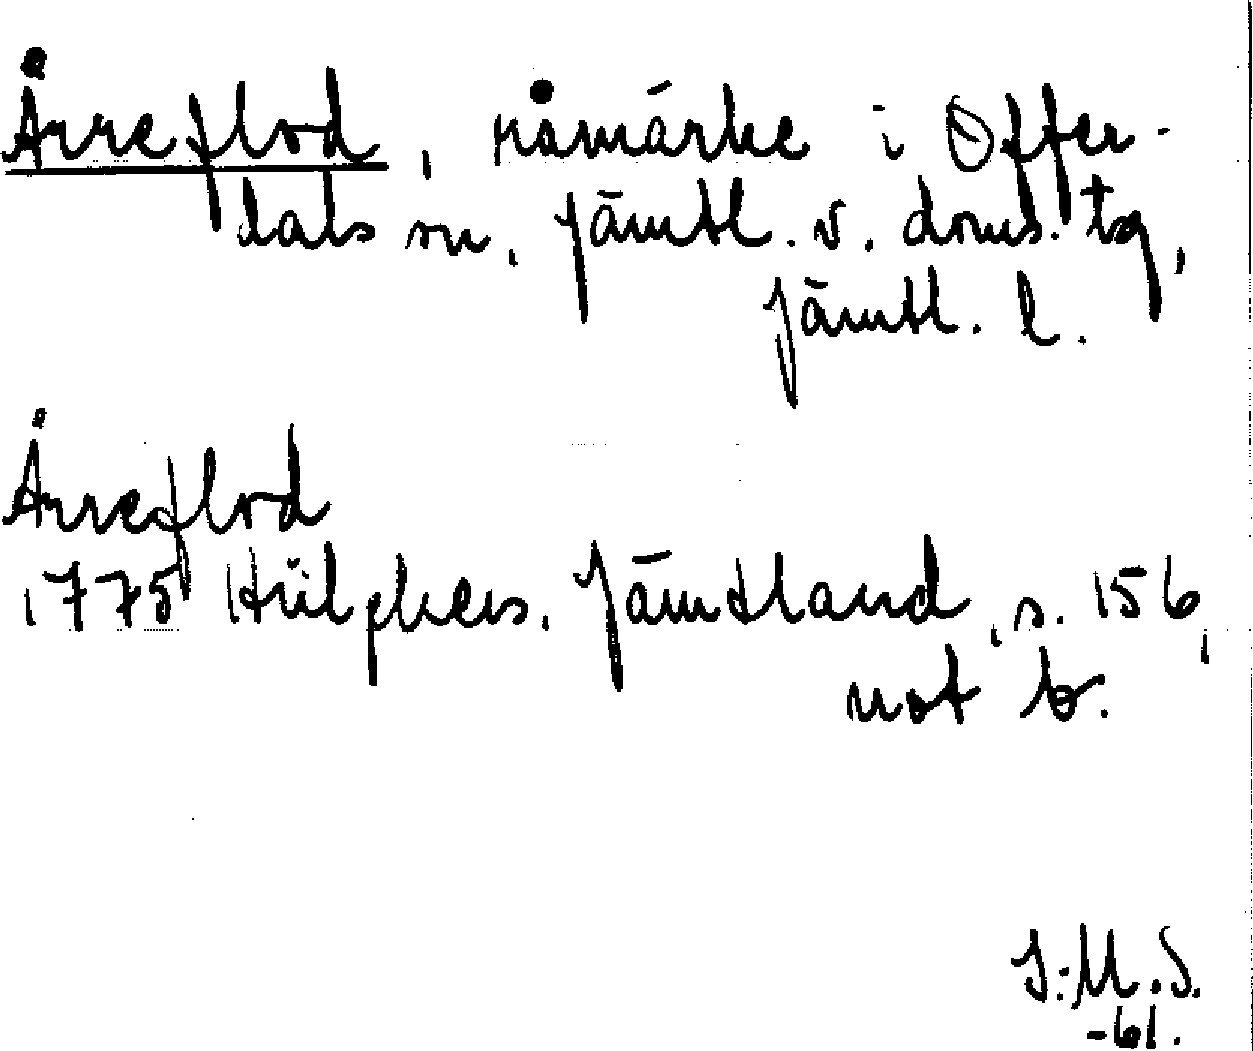 Årreflod, råmärke i Offer-
dals sn, Jämtl. v. doms. tg,
Jämtl. l.
Årreflod
1775 Hülphers, Jämtland, s. 156,
not b.
I.-M.S.
-61.